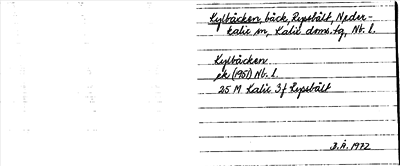 Kylbäcken, bäck, Repsbält, Neder-
kalix sn, Kalix doms. tg, Nb. l.
Kylbäcken
ek (1951) Nb. l.
25 M Kalix 3f Repsbält
B.Å. 1972